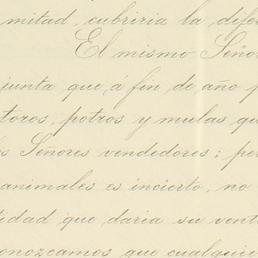 mitad, cubriria la dife
El mismo Señor
junta que, á fin de año p
toros, potros y mulas qu
s Señores vendedores; pe
animales es incierto, no
tidad que daria su vent
onozcamos que cualquie